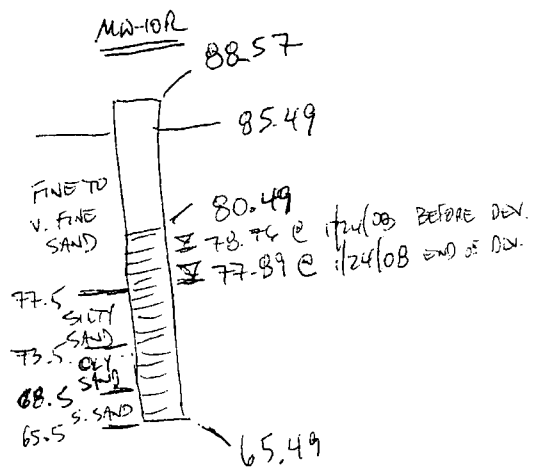 MW-10R
88.57
85.49
FINE TO
V. FINE
SAND
80.49
78.76 @ 1/24/08 BEFORE DEV.
77.89 @ 1/24/08 END OF DEV.
77.5
SILTY
SAND
73.5
CLY
SAND
68.5
S. SAND
65.5
65.49